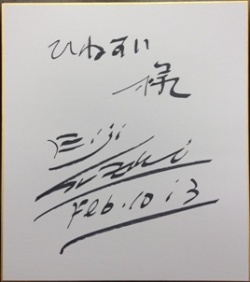 ひねすい
様
Eiji
Suzuki
Feb.10 13